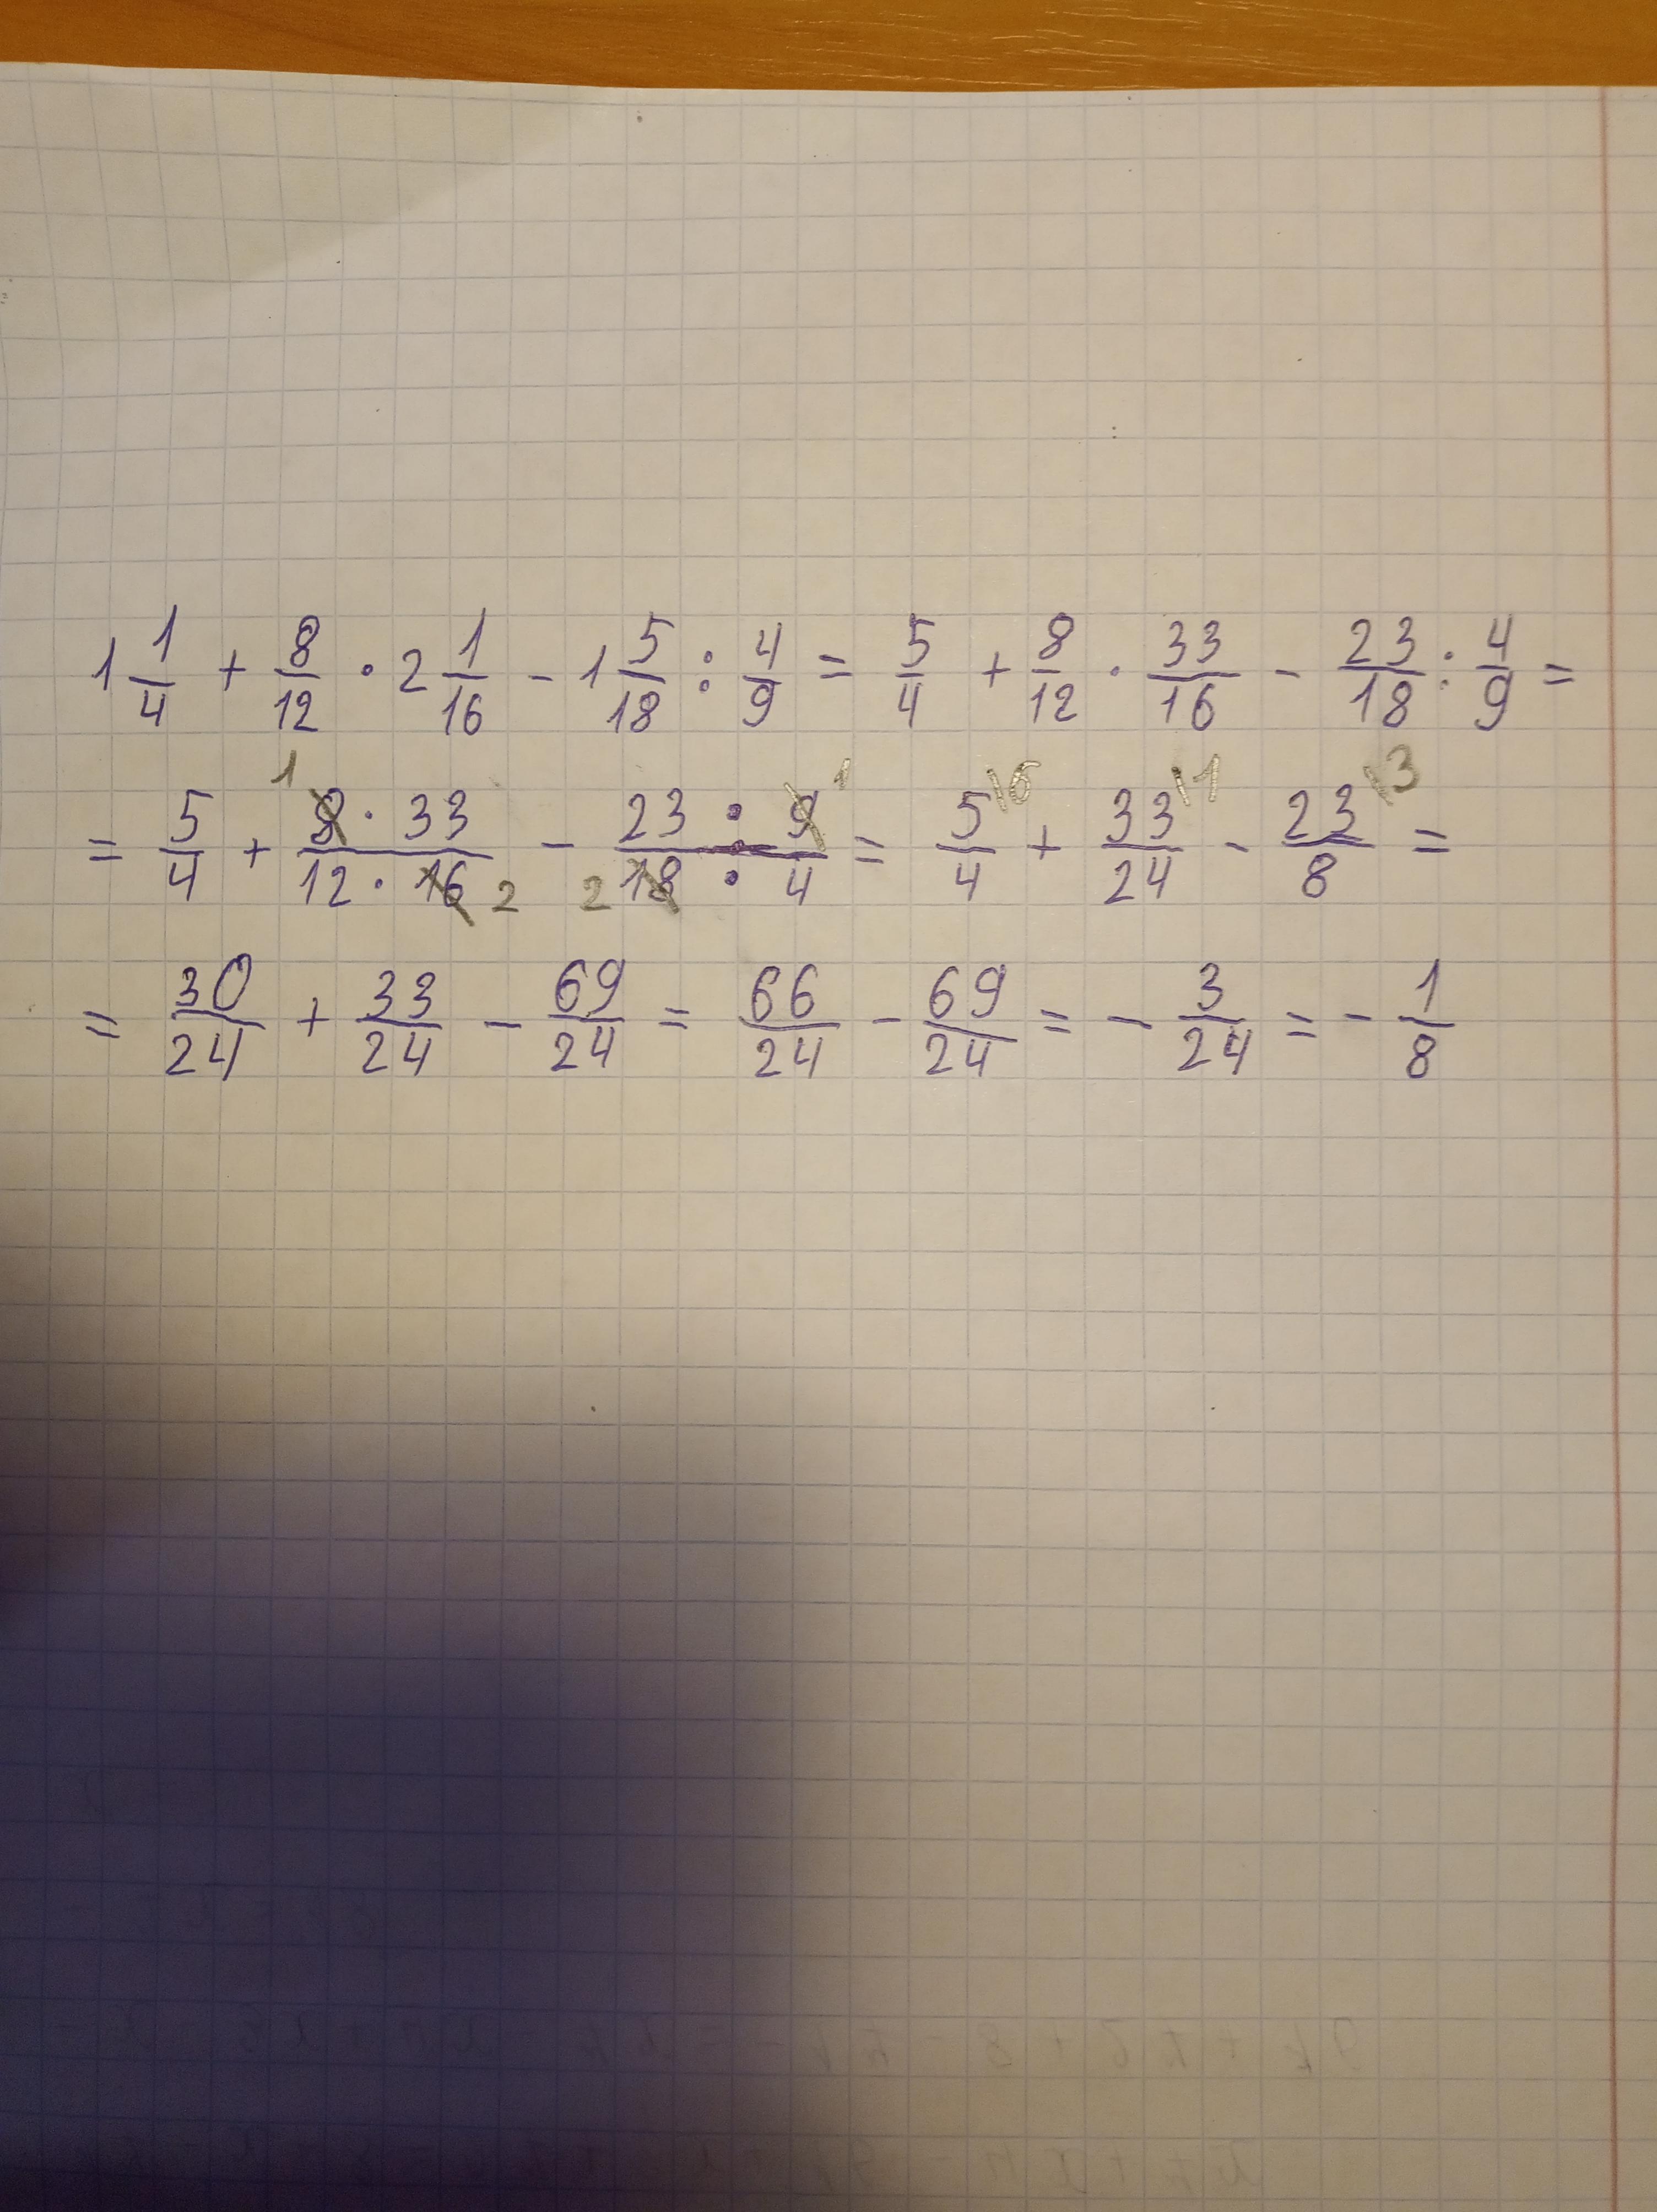 1 1/4 + 8/12 · 2 1/16 - 1 5/18 : 4/9 = 5/4 + 8/12 · 33/16 - 23/18 : 4/9 =
= 5/4 + 1 8 · 33/12 · 16 2 - 23 : 9 1/2 18 : 4 = 5/4 \6 + 33/24 \1 - 23/8 \3 =
= 30/24 + 33/24 - 69/24 = 66/24 - 69/24 = - 3/24 = - 1/8